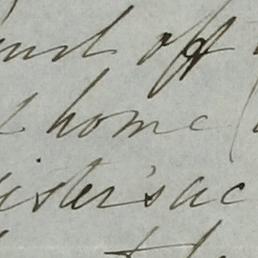 off
home (
ister's ac